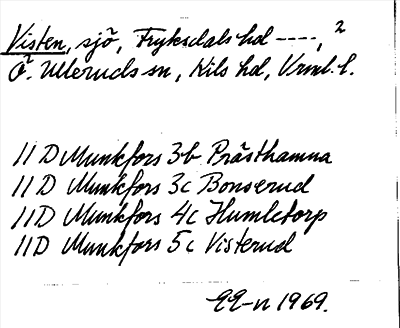 Visten, sjö, Fryksdals hd ----, 2
Ö. Ulleruds sn, Kils hd, Vrml. l.
11 D Munkfors 3b Prästhamna
11 D Munkfors 3c Bonserud
11 D Munkfors 4c Humletorp
11 D Munkfors 5c Visterud
EE-n 1969.